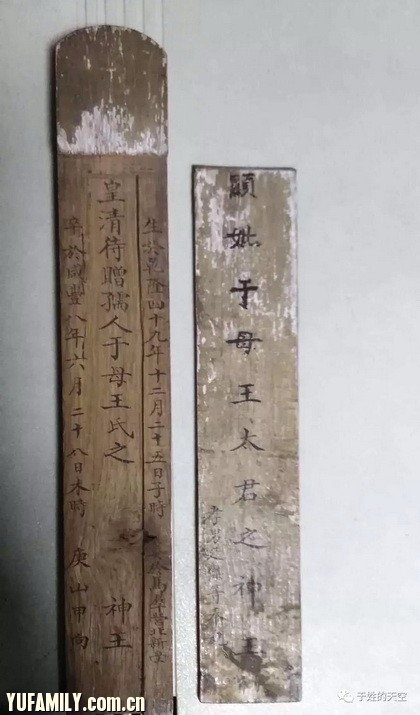 生於乾隆四十九年十二月二十五日子時
皇清待贈孺人于母王氏之 神王
卒於咸豐八年六月二十八日未時 庚山甲向
顯妣于母王太君之神主
孝男
YUFAMILY.com.cn
于姓的天空